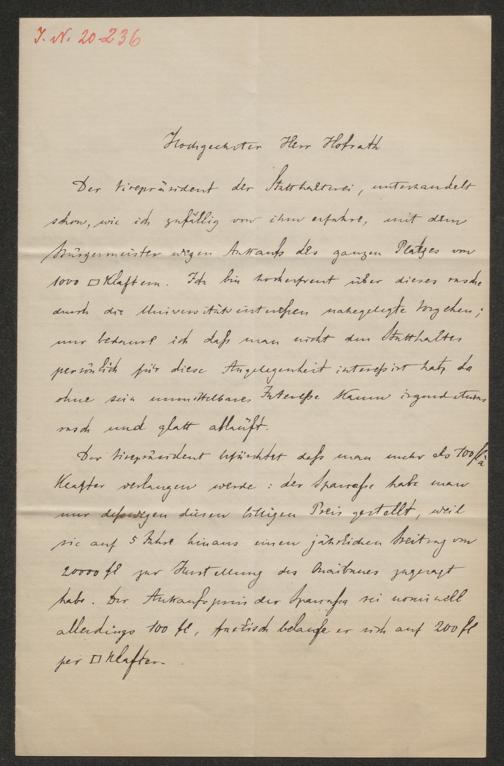 J. N. 20236
Hochgeehrter Herr Hofrath
Der Vicepräsident der Statthalterei, unterhandelt
schon, wie ich zufällig von ihm erfahre, mit dem
Bürgermeister wegen Ankaufs des ganzen Platzes von
1000 □ Klaftern. Ich bin hocherfreut über dieses rasche
durch die Universitätsinteressen nahegelegte Vorgehen;
nur bedaure ich daß man nicht den Statthalter
persönlich für diese Angelegenheit interessirt hat, da
ohne sein unmittelbares Interesse kaum irgend etwas
rasch und glatt abläuft.
Der Vicepräsident befürchtet daß man mehr als 100 fl à
Klafter verlangen werde: der Sparcasse habe man
nur deßwegen diesen billigen Preis gestellt, weil
sie auf 5 Jahre hinaus einen jährlichen Beitrag von
20000 fl zur Herstellung des Quaibaues zugesagt
habe. Der Ankaufspreis der Sparcassa sei nominell
allerdings 100 fl, factisch belaufe er sich auf 200 fl
per □ Klafter.